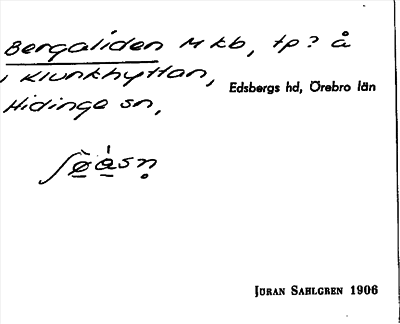 Bergaliden Mkb, tp? å
i Klunkhyttan,
Edsbergs hd, Örebro län
Hidinge sn,
Jöran Sahlgren 1906